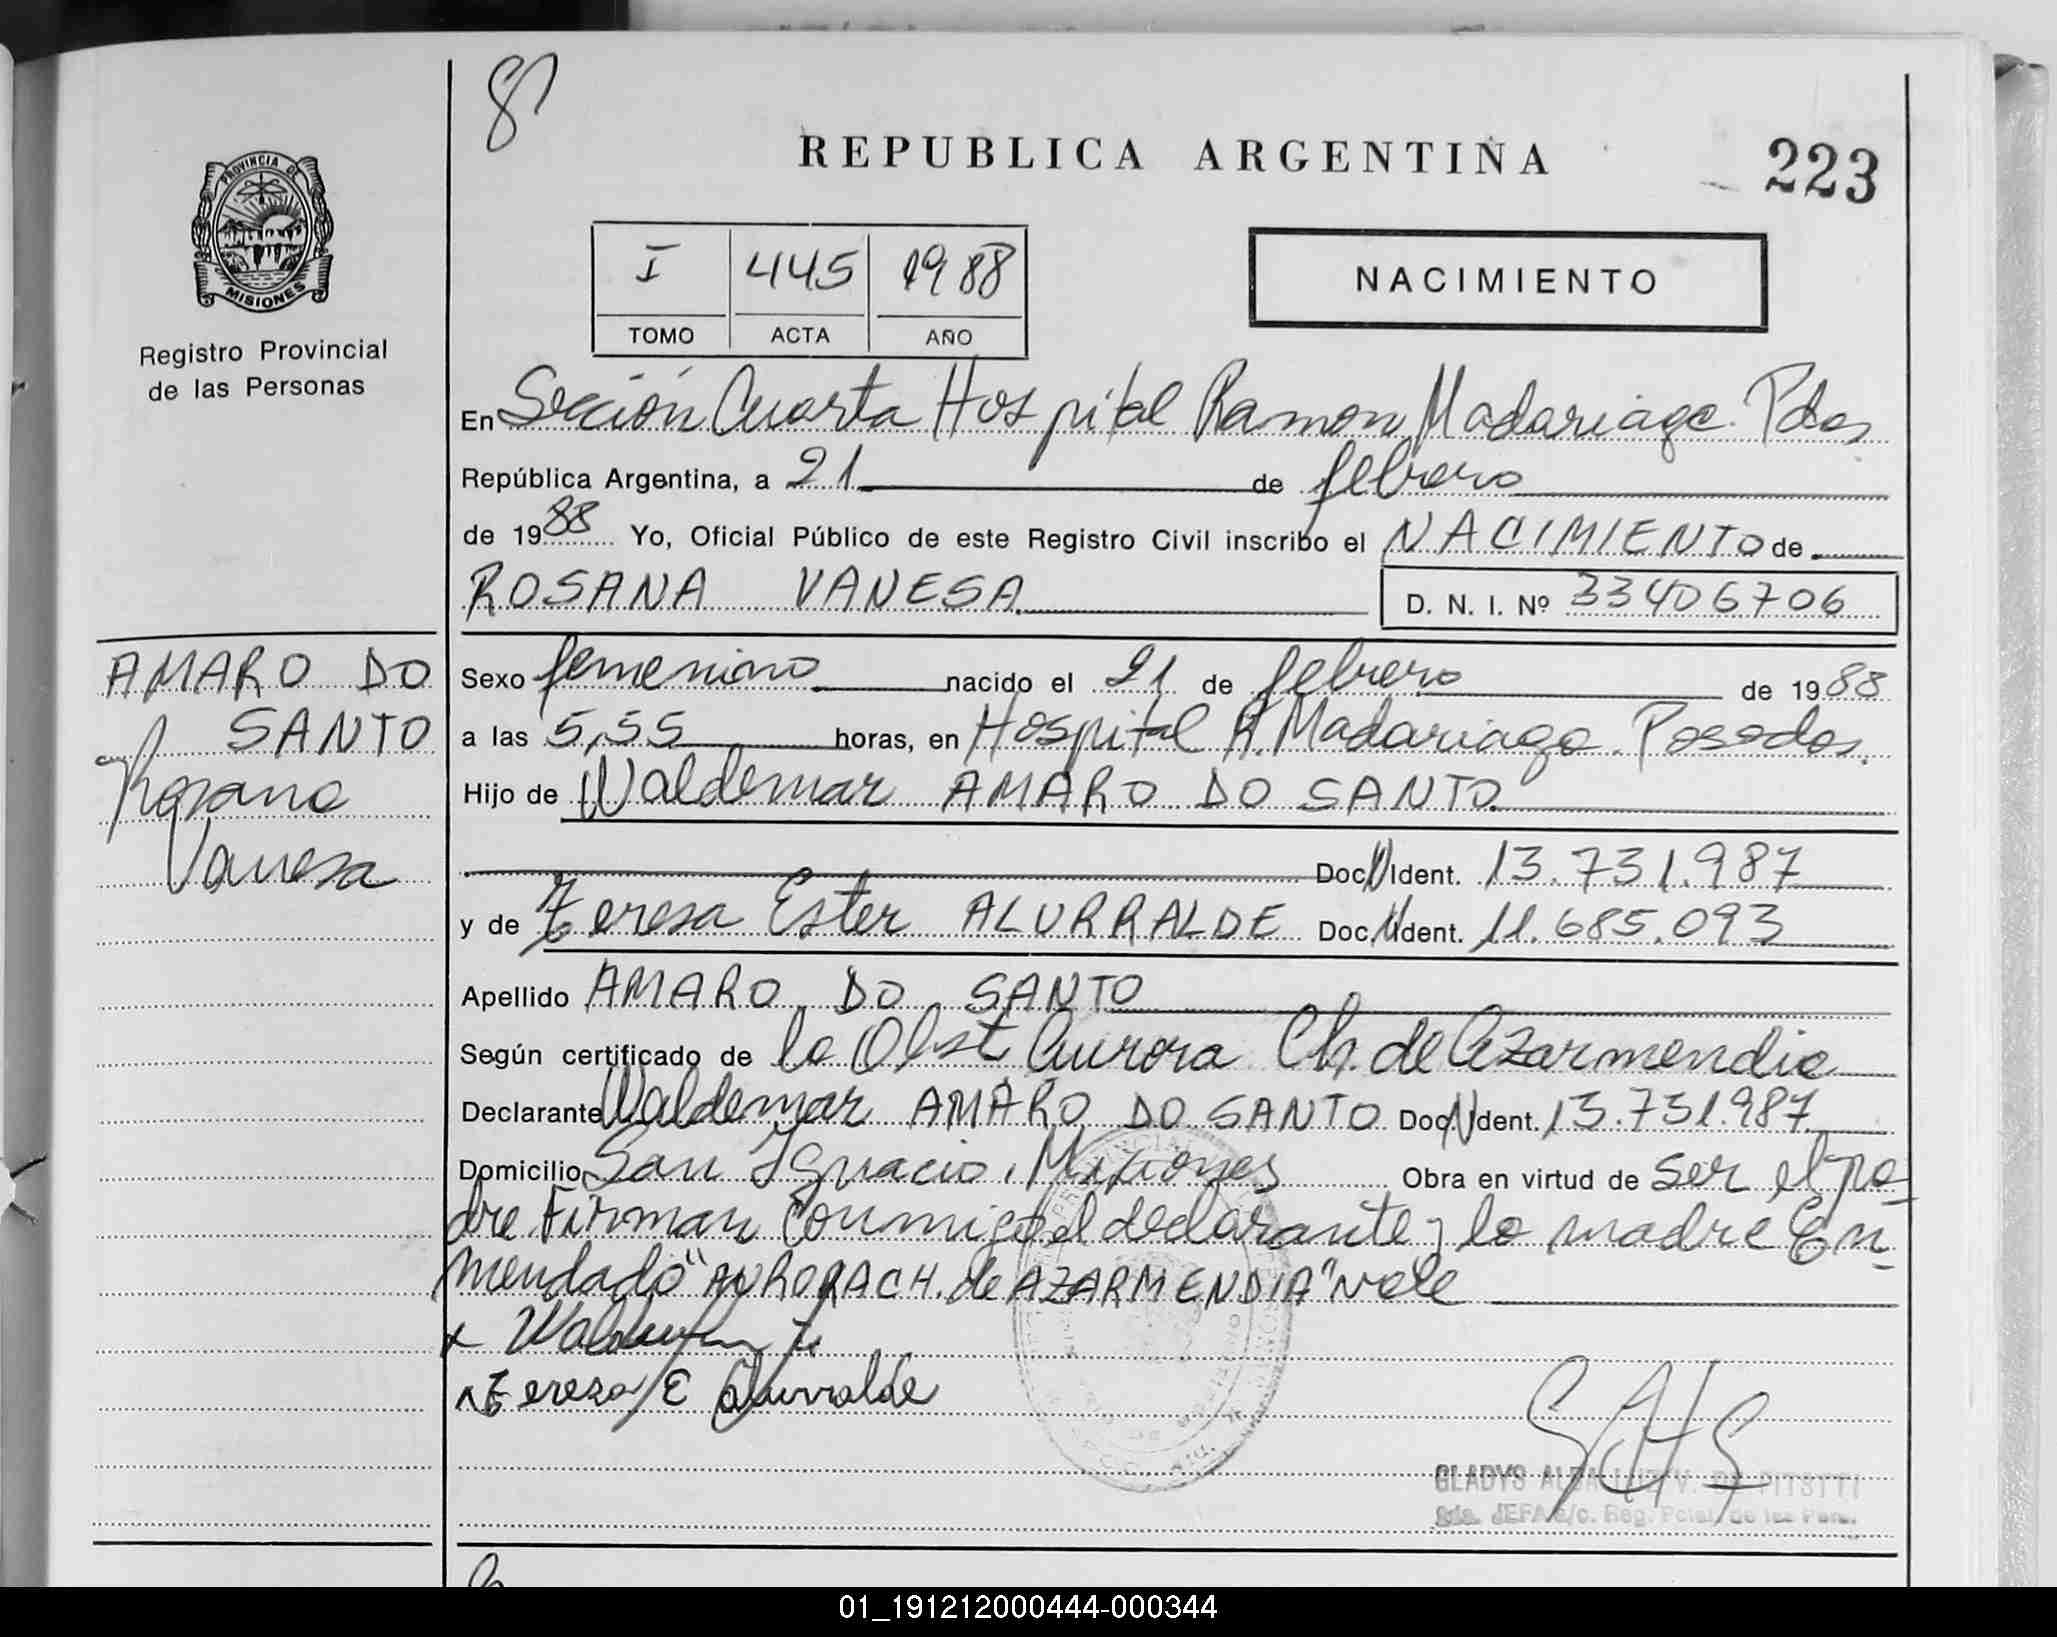 8
REPUBLICA ARGENTINA
223
PROVINCIA DE
MISIONES
Registro Provincial
de las Personas
I 445 1988
TOMO ACTA AÑO
NACIMIENTO
En Sección Cuarta Hospital Ramon Madariaga. Pdas
República Argentina, a 21 de febrero
de 1988 Yo, Oficial Público de este Registro Civil inscribo el NACIMIENTO de
ROSANA VANESA D. N. I. Nº 33406706
AMARO DO
SANTO
Rosana
Vanesa
Sexo femenino nacido el 21 de febrero de 1988
a las 5,55 horas, en Hospital R. Madariaga. Posadas.
Hijo de Waldemar AMARO DO SANTO
Doc. N Ident. 13.731.987
y de Teresa Ester ALURRALDE Doc. N Ident. 11.685.093
Apellido AMARO DO SANTO
Según certificado de la Obst Aurora Ch. de Azarmendia
Declarante Waldemar AMARO DO SANTO Doc N Ident. 13.731.987
Domicilio San Ignacio, Misiones Obra en virtud de ser el pa-
dre Firman Conmigo el declarante y la madre En-
mendado "AURORA CH. de AZARMENDIA" vale
Teresa E Alurralde
GLADYS ALBA
JEFA a/c. Reg. Pcial. de las Pers.
01_191212000444-000344